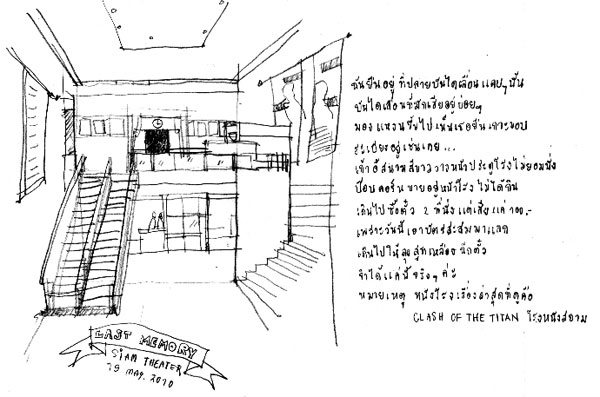 ฉันยืนอยู่ ที่ปลายบันไดเลื่อนแคบๆนั้น
บันไดเลื่อนที่มักเสียอยู่บ่อยๆ
มอง แหงนขึ้นไป เห็นเธอยืน เกาะขอบ
ระเบียงอยู่เช่นเคย ...
เก้าอี้สนามสีขาววางหน้าประตูโรง ไม่ยอมนั่ง
ป๊อบคอร์น ขายอยู่หน้าโรง ไม่ได้กิน
เดินไป ซื้อตั๋ว 2 ที่นั่ง แต่เสียแค่ 100.-
เพราะวันนี้ เอาบัตรสะสมมาแลก
เดินไปให้ลุง สูทเหลือง ฉีกตั๋ว
จำได้แค่นี้ จริงๆ ค่ะ
หมายเหตุ หนังโรงเรื่องล่าสุดที่ดูคือ
CLASH OF THE TITAN โรงหนังสยาม
LAST MEMORY
SIAM THEATER
19 MAY. 2010